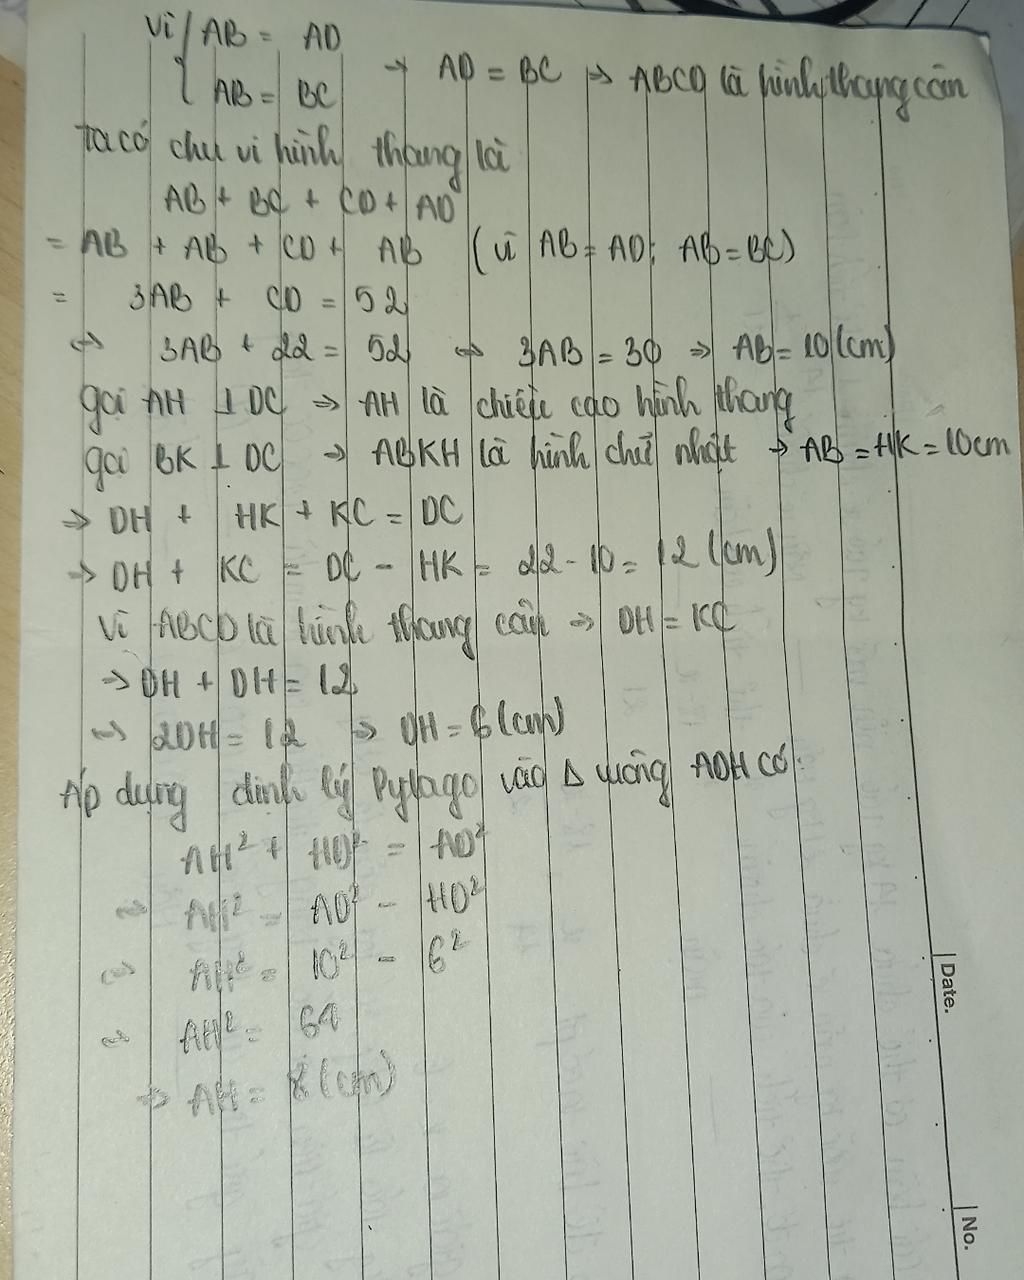 Vì { AB = AD
AB = BC → AD = BC ⇒ ABCD là hình thang cân
ta có chu vi hình thang là
AB + BC + CD + AD
= AB + AB + CD + AB (vì AB = AD; AB = BC)
= 3AB + CD = 52
⇒ 3AB + 22 = 52 ⇒ 3AB = 30 ⇒ AB = 10 (cm)
gọi AH ⊥ DC ⇒ AH là chiều cao hình thang
gọi BK ⊥ DC ⇒ ABKH là hình chữ nhật → AB = HK = 10cm
⇒ DH + HK + KC = DC
⇒ DH + KC = DC - HK = 22 - 10 = 12 (cm)
Vì ABCD là hình thang cân ⇒ DH = KC
⇒ DH + DH = 12
⇒ 2DH = 12 ⇒ DH = 6 (cm)
Áp dụng định lý Pytago vào Δ vuông ADH có:
AH² + HD² = AD²
⇒ AH² = AD² - HD²
⇒ AH² = 10² - 6²
⇒ AH² = 64
⇒ AH = 8 (cm)
Date.
No.